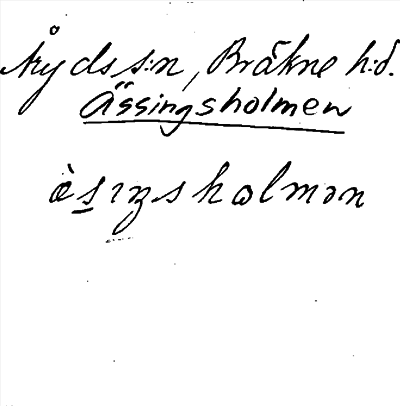 Åryds s:n, Bräkne h:d.
Ässingsholmen
ὲs̲ıŋshɷlmən